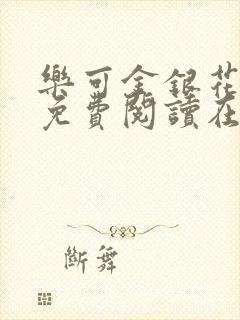 樂可金銀花
免費閱讀在
斷舞